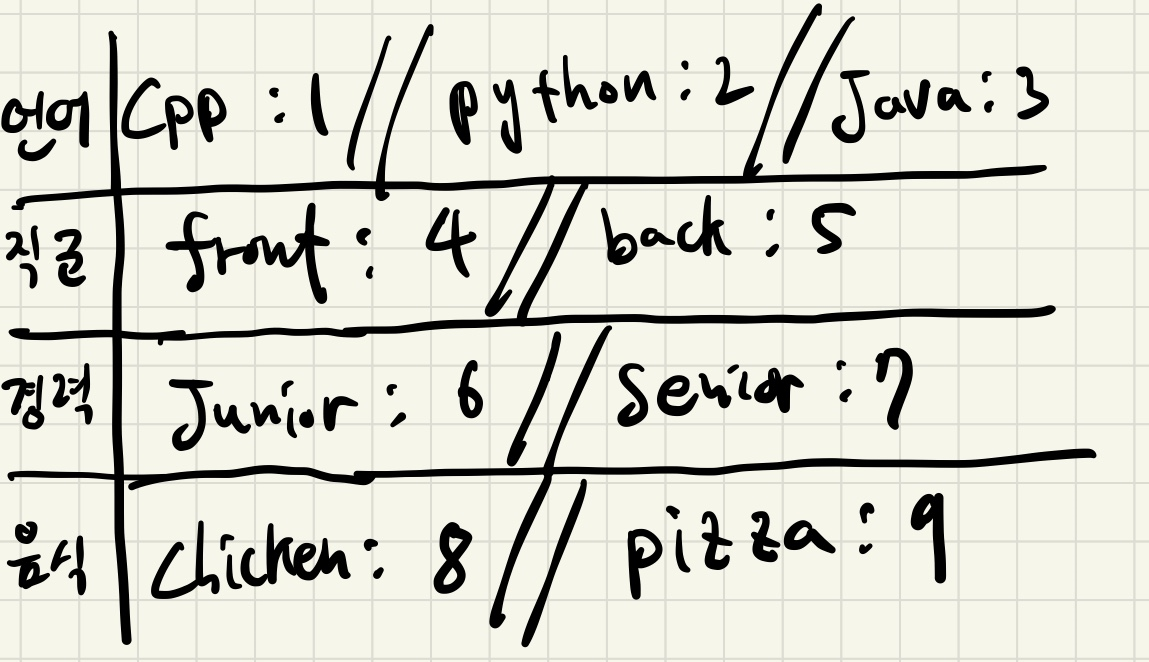 언어 Cpp : 1 // python : 2 // Java : 3
직군 front : 4 // back : 5
경력 Junior : 6 // Senior : 7
음식 chicken : 8 // pizza : 9